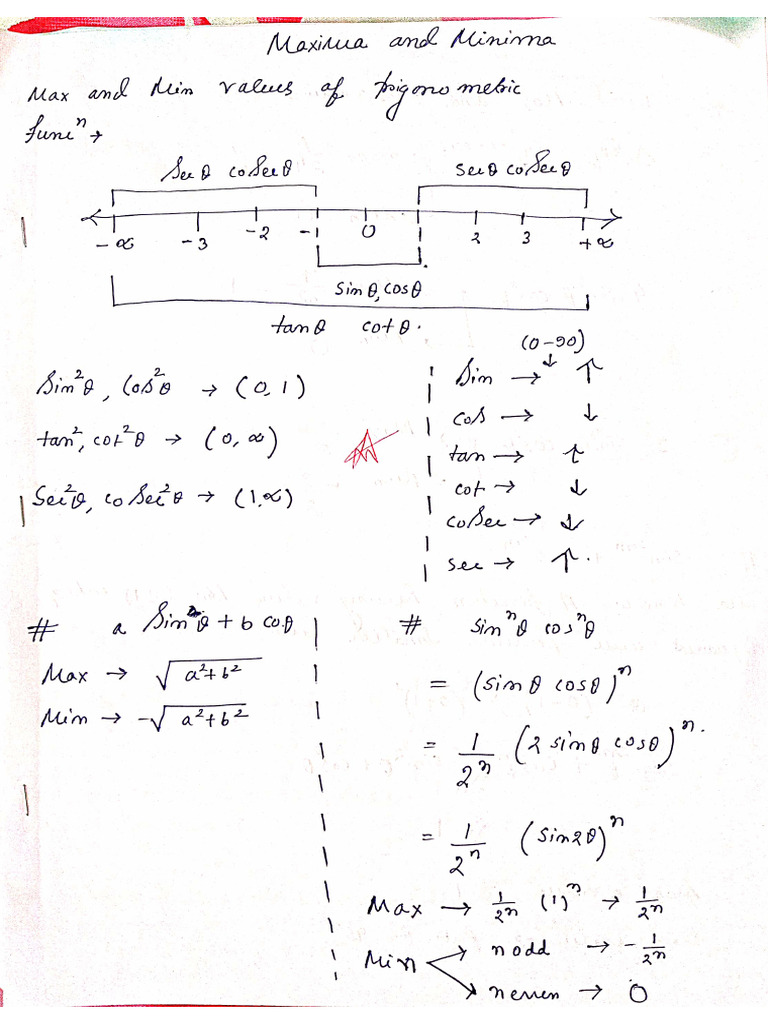 Maxima and Minima
Max and Min values of trigonometric
funcⁿ→
Secθ coSecθ
secθ coSecθ
-∞ -3 -2 -1 0 2 3 +∞
sinθ, cosθ
tanθ cotθ.
Sin²θ, Cos²θ → (0, 1)
tan², cot²θ → (0, ∞)
Sec²θ, coSec²θ → (1,∞)
(0-90)
↓
Sin → ↑
cos → ↓
tan → ↑
cot → ↓
coSec → ↓
sec → ↑.
# a Sinθ + b cosθ
Max → √a²+b²
Min → -√a²+b²
# sinⁿθ cosⁿθ
= (sinθ cosθ)ⁿ
= 1/2ⁿ (2 sinθ cosθ)ⁿ.
= 1/2ⁿ (Sin2θ)ⁿ
Max → 1/2ⁿ (1)ⁿ → 1/2ⁿ
Min → n odd → -1/2ⁿ
→ n even → 0